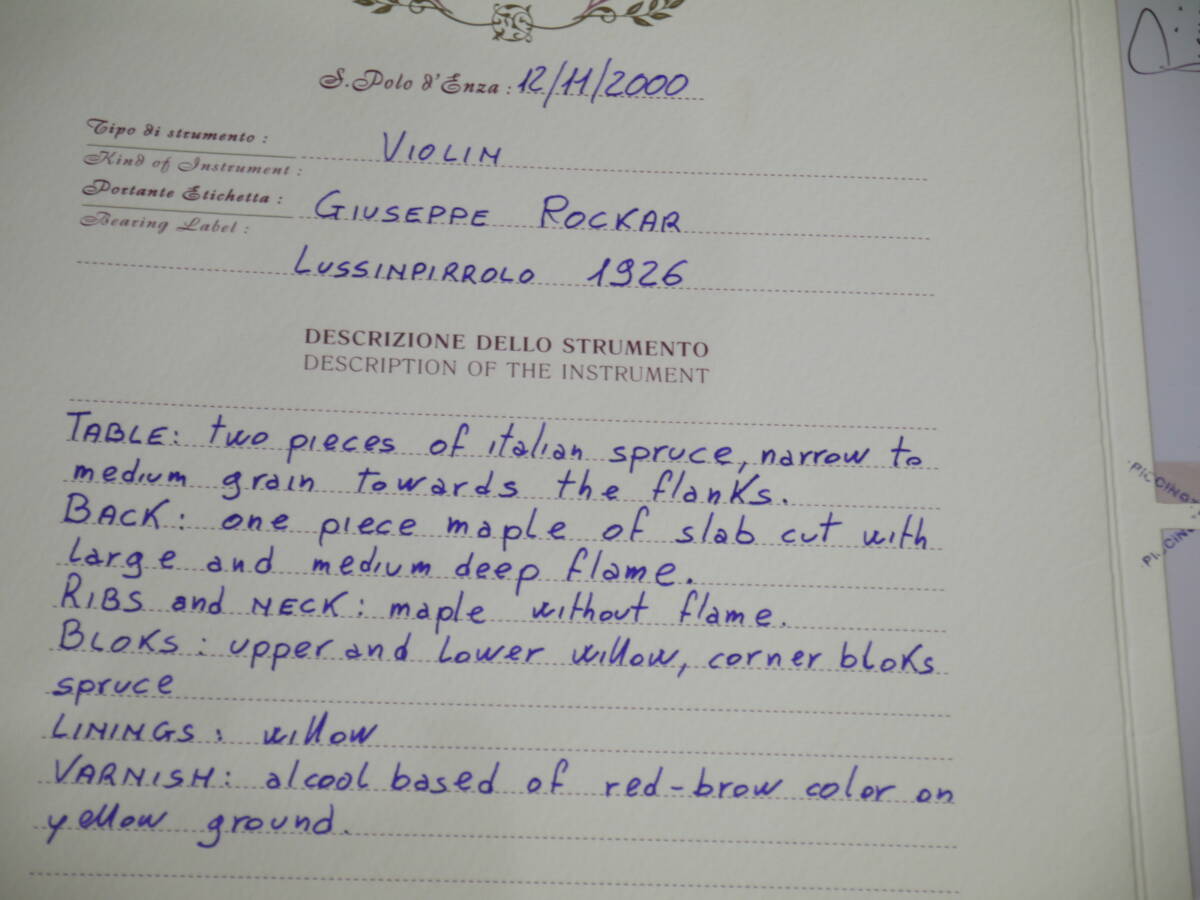 S. Polo d'Enza : 12/11/2000
Tipo di strumento :
Kind of Instrument : VIOLIN
Portante Etichetta :
Bearing Label : GIUSEPPE ROCKAR
LUSSINPIRROLO 1926
DESCRIZIONE DELLO STRUMENTO
DESCRIPTION OF THE INSTRUMENT
TABLE: two pieces of italian spruce, narrow to
medium grain towards the flanks.
BACK: one piece maple of slab cut with
large and medium deep flame.
RIBS and NECK: maple without flame.
BLOKS: upper and lower willow, corner bloks
spruce
LININGS: willow
VARNISH: alcool based of red-brow color on
yellow ground.